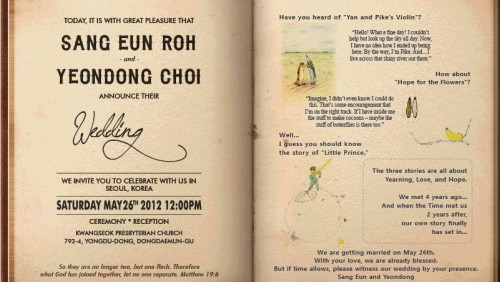 TODAY, IT IS WITH GREAT PLEASURE THAT
SANG EUN ROH
- and -
YEONDONG CHOI
ANNOUNCE THEIR
Wedding
WE INVITE YOU TO CELEBRATE WITH US IN
SEOUL, KOREA
SATURDAY MAY26TH 2012 12:00PM
CEREMONY * RECEPTION
KWANGSEOK PRESBYTERIAN CHURCH
792-4, YONGDU-DONG, DONGDAEMUN-GU
So they are no longer two, but one flesh. Therefore
what God has joined together, let no one separate. Matthew 19:6
Have you heard of "Yan and Pike's Violin"?
"Hello! What a fine day! I couldn't
help but look up the sky all day. Now,
I have no idea how I ended up being
here. By the way, I'm Pike. And... I
live across that shiny river out there."
How about
"Hope for the Flowers"?
"Imagine, I didn't even know I could do
this. That's some encouragement that
I'm on the right track. If I have inside me
the stuff to make cocoons – maybe the
stuff of butterflies is there too."
Well...
I guess you should know
the story of "Little Prince,"
The three stories are all about
Yearning, Love, and Hope.
We met 4 years ago...
And when the Time met us
2 years after,
our own story finally
has set in...
We are getting married on May 26th.
With your love, we are already blessed.
But if time allows, please witness our wedding by your presence.
Sang Eun and Yeondong